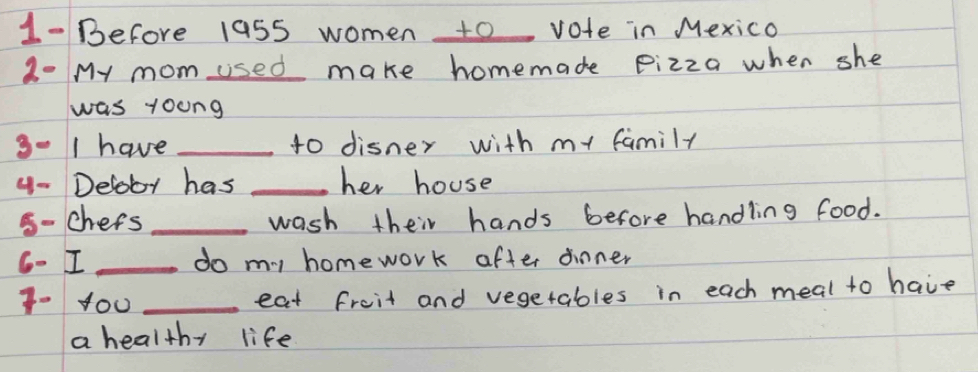 1- Before 1955 women to vote in Mexico
2- My mom used make homemade Pizza when she
was young
3- I have ______ to disney with my family
4- Debby has ______ her house
5- Chefs ______ wash their hands before handling food.
6- I ______ do my homework after dinner
7- You ______ eat fruit and vegetables in each meal to have
a healthy life